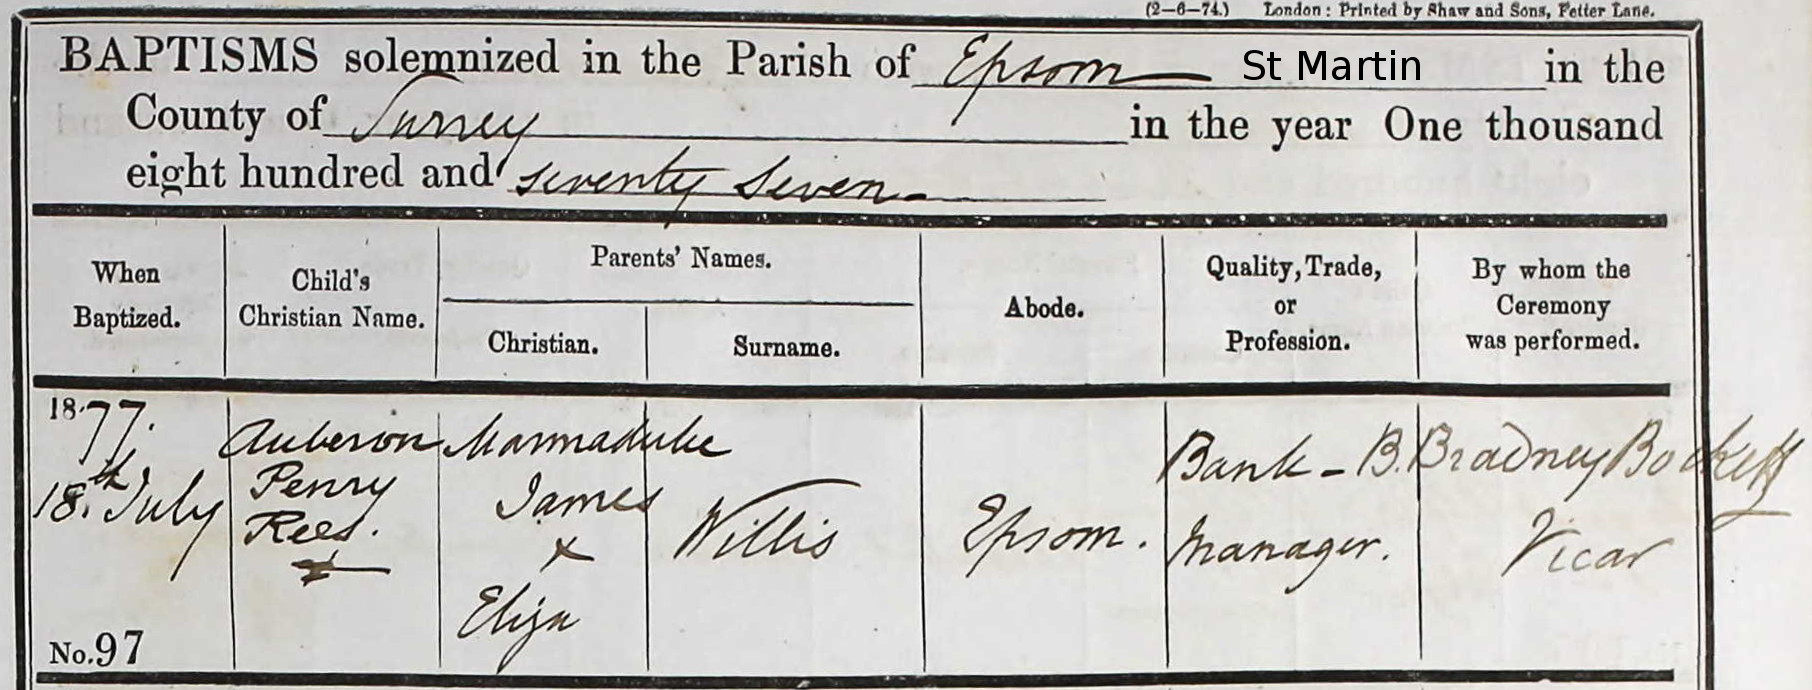 (2-6-74.) London: Printed by Shaw and Sons, Fetter Lane.
BAPTISMS solemnized in the Parish of Epsom St Martin in the
County of Surrey in the year One thousand
eight hundred and seventy seven
When Baptized.
Child's Christian Name.
Parents' Names.
Christian.
Surname.
Abode.
Quality, Trade, or Profession.
By whom the Ceremony was performed.
1877.
18th July
No. 97
Auberon
Penry
Rees.
Marmaduke
James
+
Eliza
Willis
Epsom.
Bank-
Manager.
B. Bradney Bockett
Vicar